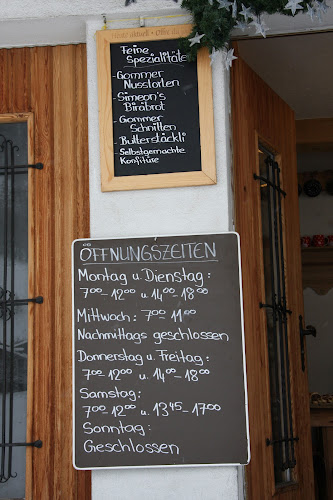 Feine
Spezialitäte
- Gommer
Nusstorten
- Simeon's
Birabrot
- Gommer
Schnitten
- Butterstäckli
- Selbstgemachte
Konfitüre
ÖFFNUNGSZEITEN
Montag u. Dienstag:
7⁰⁰-12⁰⁰ u. 14⁰⁰-18⁰⁰
Mittwoch: 7⁰⁰-11⁰⁰
Nachmittags geschlossen
Donnerstag u. Freitag:
7⁰⁰-12⁰⁰ u. 14⁰⁰-18⁰⁰
Samstag:
7⁰⁰-12⁰⁰ u. 13⁴⁵-17⁰⁰
Sonntag:
Geschlossen